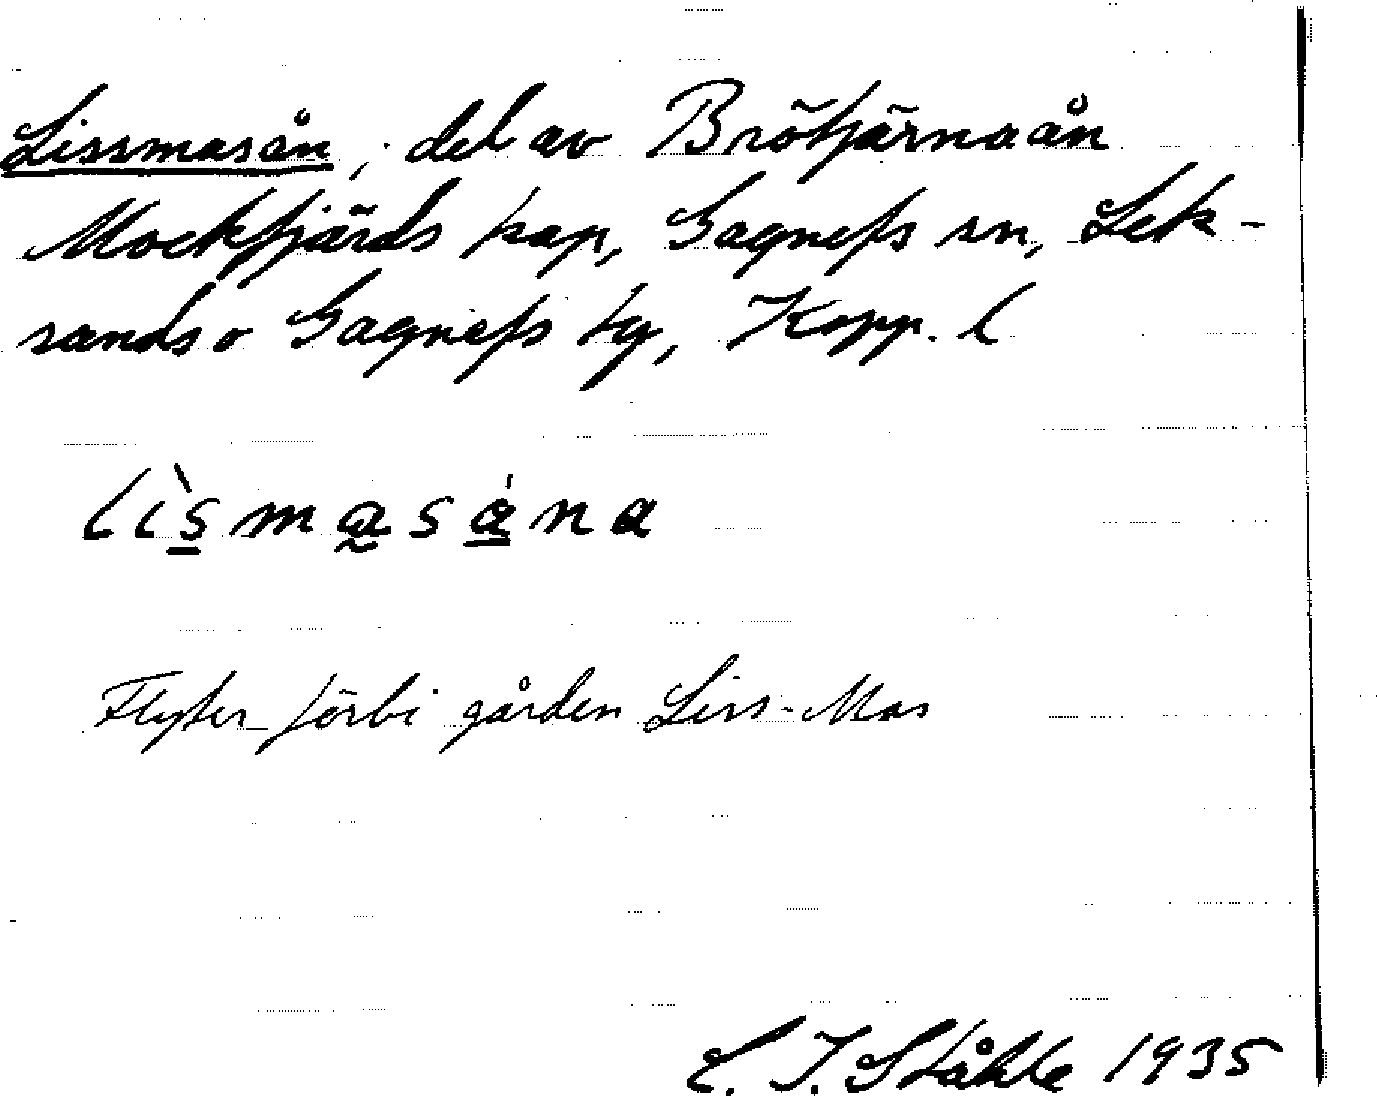 Lissmasån, del av Brötjärnaån
Mockfjärds kap, Gagnefs sn, Lek-
sands o Gagnefs tg, Kopp. l
lìsmasána
Flyter förbi gården Liss-Mas
C. I. Ståhle 1935